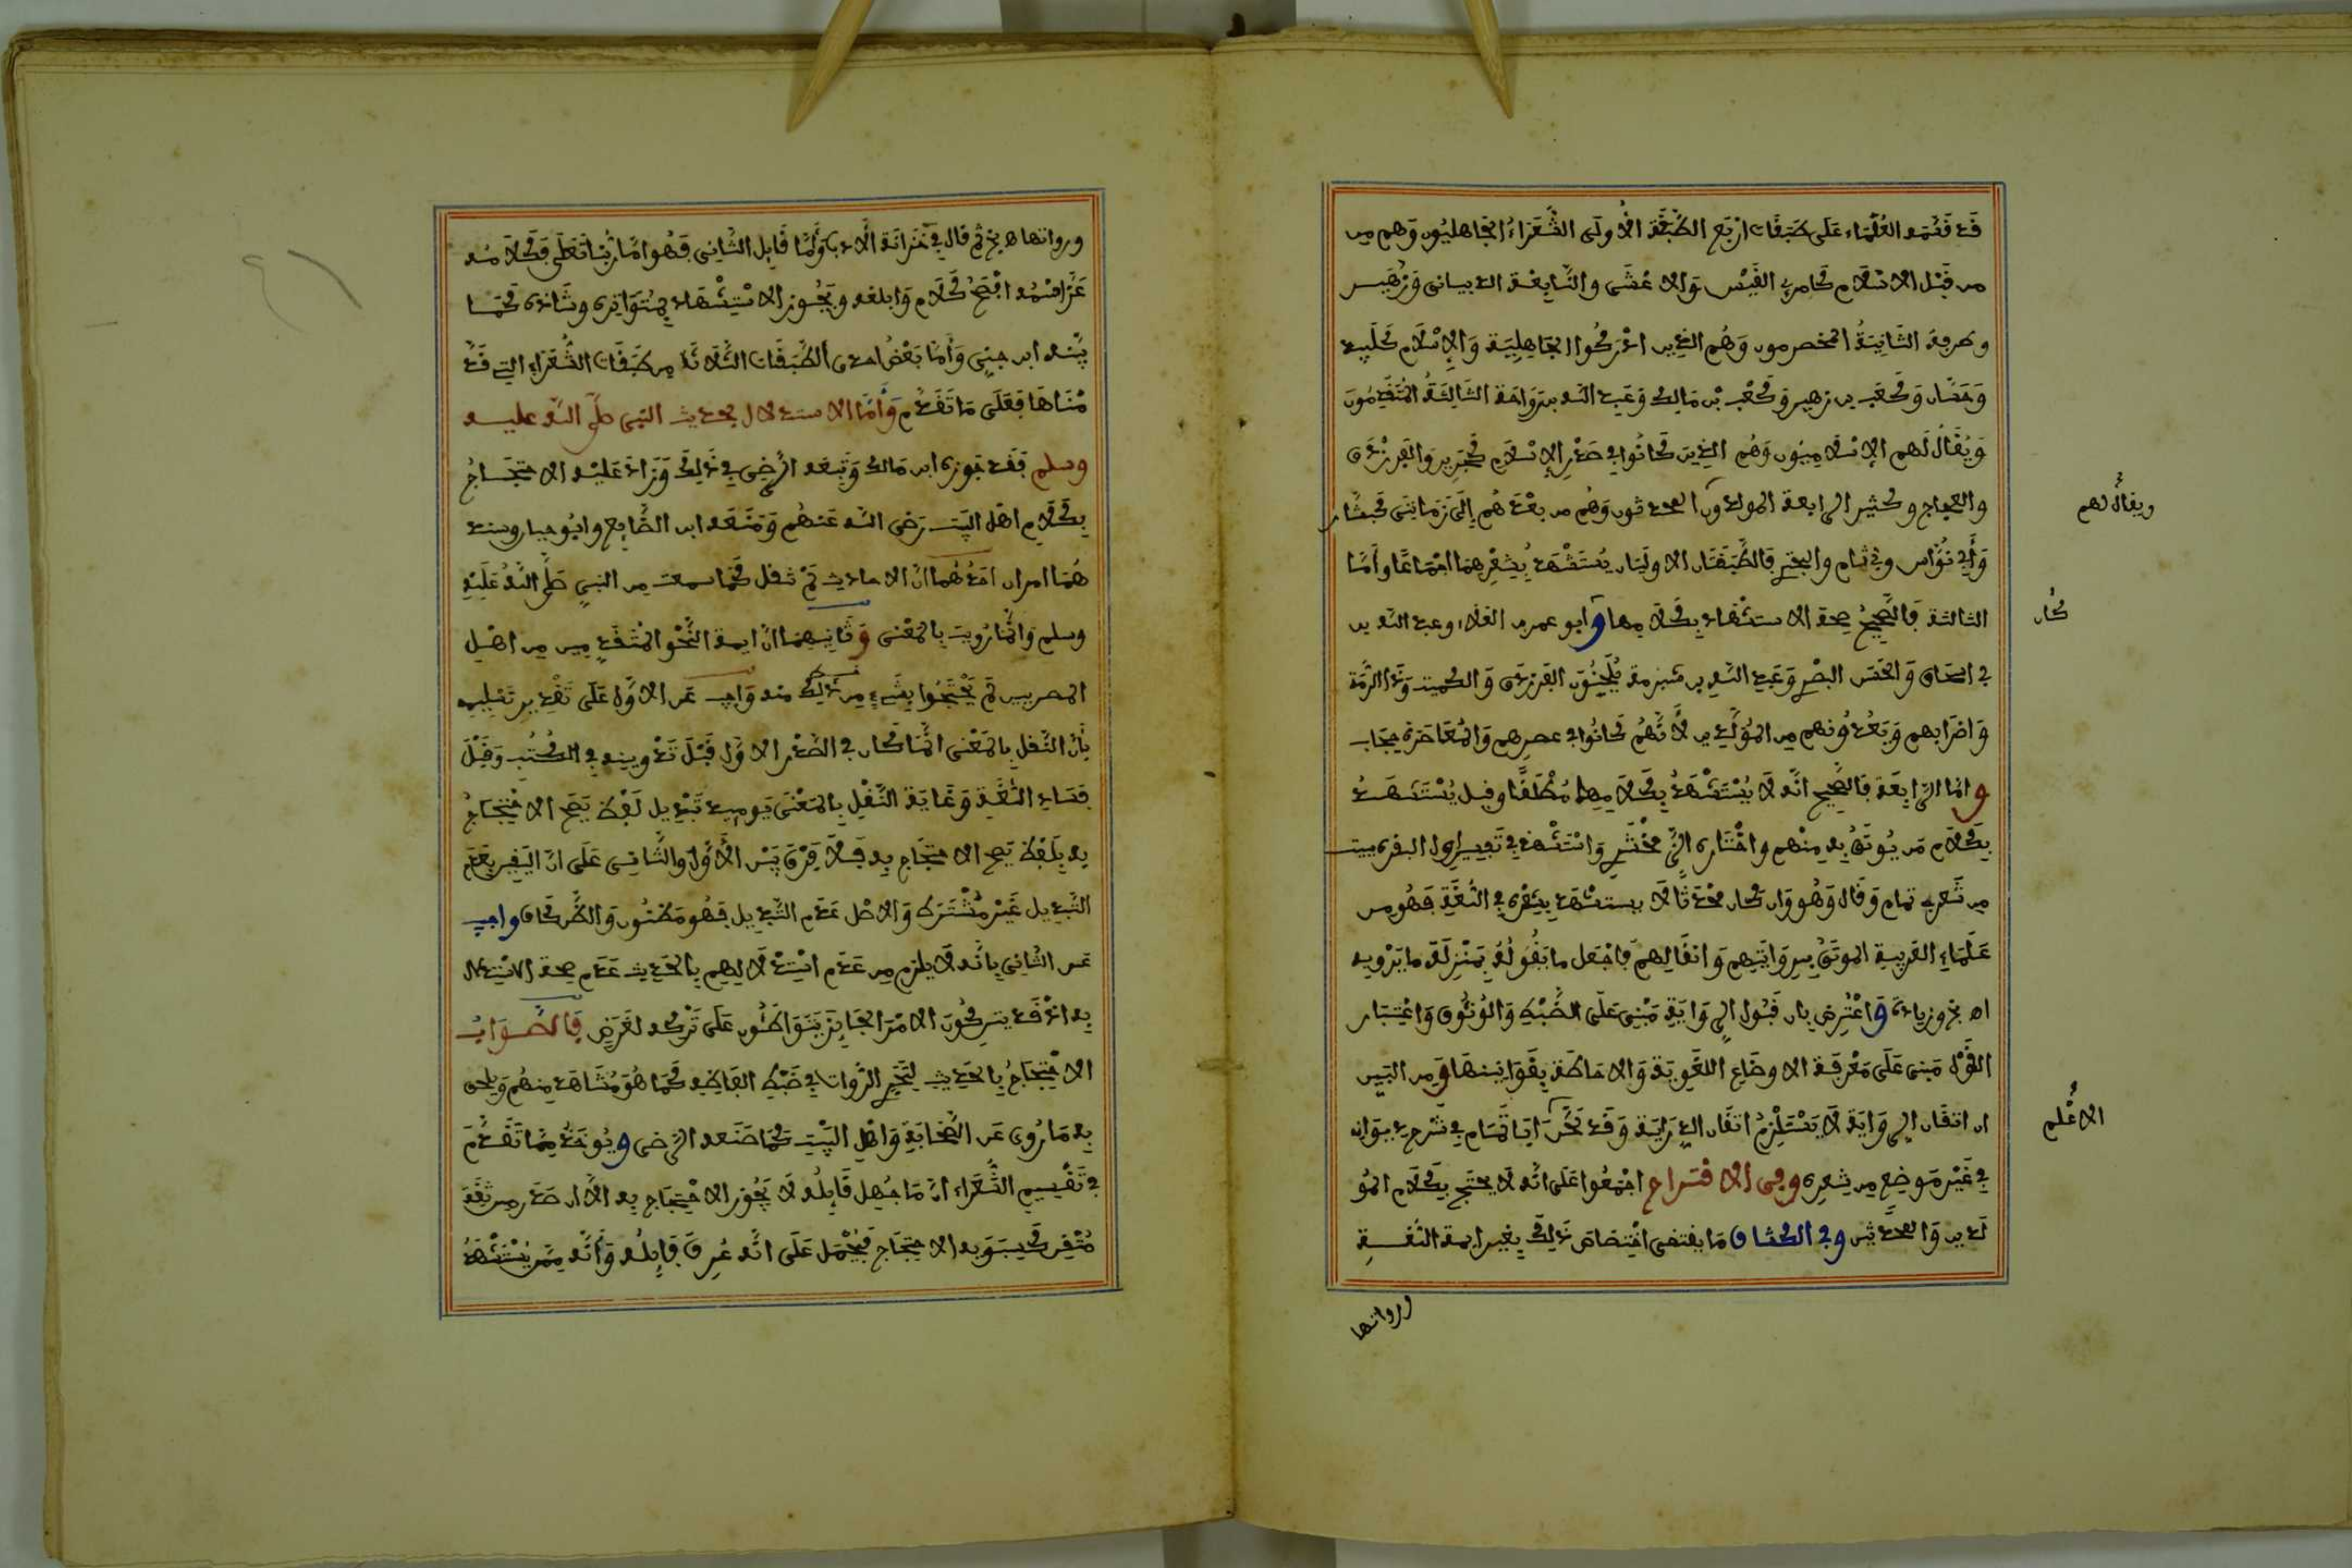 قد قسمه العلماء على طبقات اربع الطبقة الأولى الشعراء الجاهليون وهم من
من قبل الاسلام كامرئ القيس والاعشى والنابغة الذبيانى وزهير
وطرفة الثانية المخضرمون وهم الذين ادركوا الجاهلية والإسلام كلبيد
وحسان وكعب بن زهير وكعب بن مالك وعبد الله بن رواحة الثالثة المتقدمون
ويقال لهم الإسلاميون وهم الذين كانوا في صدر الإسلام كجرير والفرزدق
والعجاج وكثير الرابعة المولدون المحدثون وهم من بعدهم إلى زمانى كبشار
ويقال لهم
وأبي نواس وبي تمام والبحتري فالطبقتان الاوليتان يستشهد بشعرهما اجماعا وأما
الثالثة فالصحيح صحة الاستشهاد بكلامها وابو عمر بن العلاء وعبد الله بن
كان
بي اسحاق والحسن البصري وعبد الله بن شبرمة يلحنون الفرزدق والكميت وذا الرمة
واضرابهم ويعدونهم من المولدين لأنهم كانوا في عصرهم والمعاصرة حجاب
واما الرابعة فالصحيح انه لا يستشهد بكلامها مطلقا وقيل يستشهد
بكلام من يوثق به منهم واختاره الزمخشري واستشهد في تفسير اول البقرة ببيت
من شعر بي تمام وقال وهو وان كان محدثا لا يستشهد بشعره في اللغة فهو من
علماء العربية الموثق بروايتهم وانقالهم فاجعل ما يقوله بمنزلة ما يرويه
اه بخ وزيادة واعترض بان قبول الرواية مبنى على الضبط والوثوق واعتبار
القول مبنى على معرفة الاوضاع اللغوية والاحاطة بقوانينها ومن البين
ان اتقان الرواية لا يستلزم اتقان الدراية وقد لحن ابا تمام في شرح ديوانه
الاعلم
في غير موضع من شعره وفى الاقتراح اجمعوا على انه لا يحتج بكلام المو
لدين والمحدثين وفي الكشاف ما يقتضى اختصاص ذلك بغير ايمة اللغة
ورواتها
ورواتها اه بخ ثم قال في خزانة الادب واما قابل الثانى فهو اما ربنا تعلى فكلامه
عز اسمه افصح كلام وابلغه ويجوز الاستشهاد بمتواتره وشاذه كما
بينه ابن جنى وأما بعض احدى الطبقات الثلاثة من طبقات الشعراء التي قد
مناها فعلى ما تقدم وأما الاستدلال بحديث النبى صلى الله عليه
وسلم فقد جوزه ابن مالك وتبعه الرضى في ذلك وزاد عليه الاحتجاج
بكلام اهل البيت رضى الله عنهم ومنعه ابن الضايع وابو حيان وسند
هما امران احدهما ان الاحاديث لم تنقل كما سمعت من النبي صلى الله عليه
وسلم وانما رويت بالمعنى وثانيهما ان ايمة النحو المتقدمين من اهل
المصريين لم يحتجوا بشيء من ذلك منه واجيب عن الاول على تقدير تسليمه
بأن النقل بالمعنى انما كان في الصدر الاول قبل تدوينه في الكتب وقبل
فساد اللغة وغاية النقل بالمعنى يومئذ تبديل لفظ يصح الاحتجاج
به بلفظ يصح الاحتجاج به فلا فرق بين الأول والثانى على ان اليقين بعدم
التبديل غير مشترك والاصل عدم التبديل فهو مظنون والظن كاف واجيب
عن الثاني بانه لا يلزم من عدم استدلالهم بالحديث عدم صحة الاستدلال
به اذ قد يتركون الامر الجايز يتواطئون على تركه لغرض فالصواب
الاحتجاج بالحديث لتحري الروات في ضبط الفاظه كما هو مشاهد منهم ويلحق
به ما روى عن الصحابة واهل البيت كما صنعه الرضى ويوخذ مما تقدم
في تقسيم الشعراء ان ما جهل قايله لا يجوز الاحتجاج به الا ان صدر من ثقة
متقن كسيبويه الاحتجاج فيحمل على انه عرف قايله وأنه ممن يستشهد